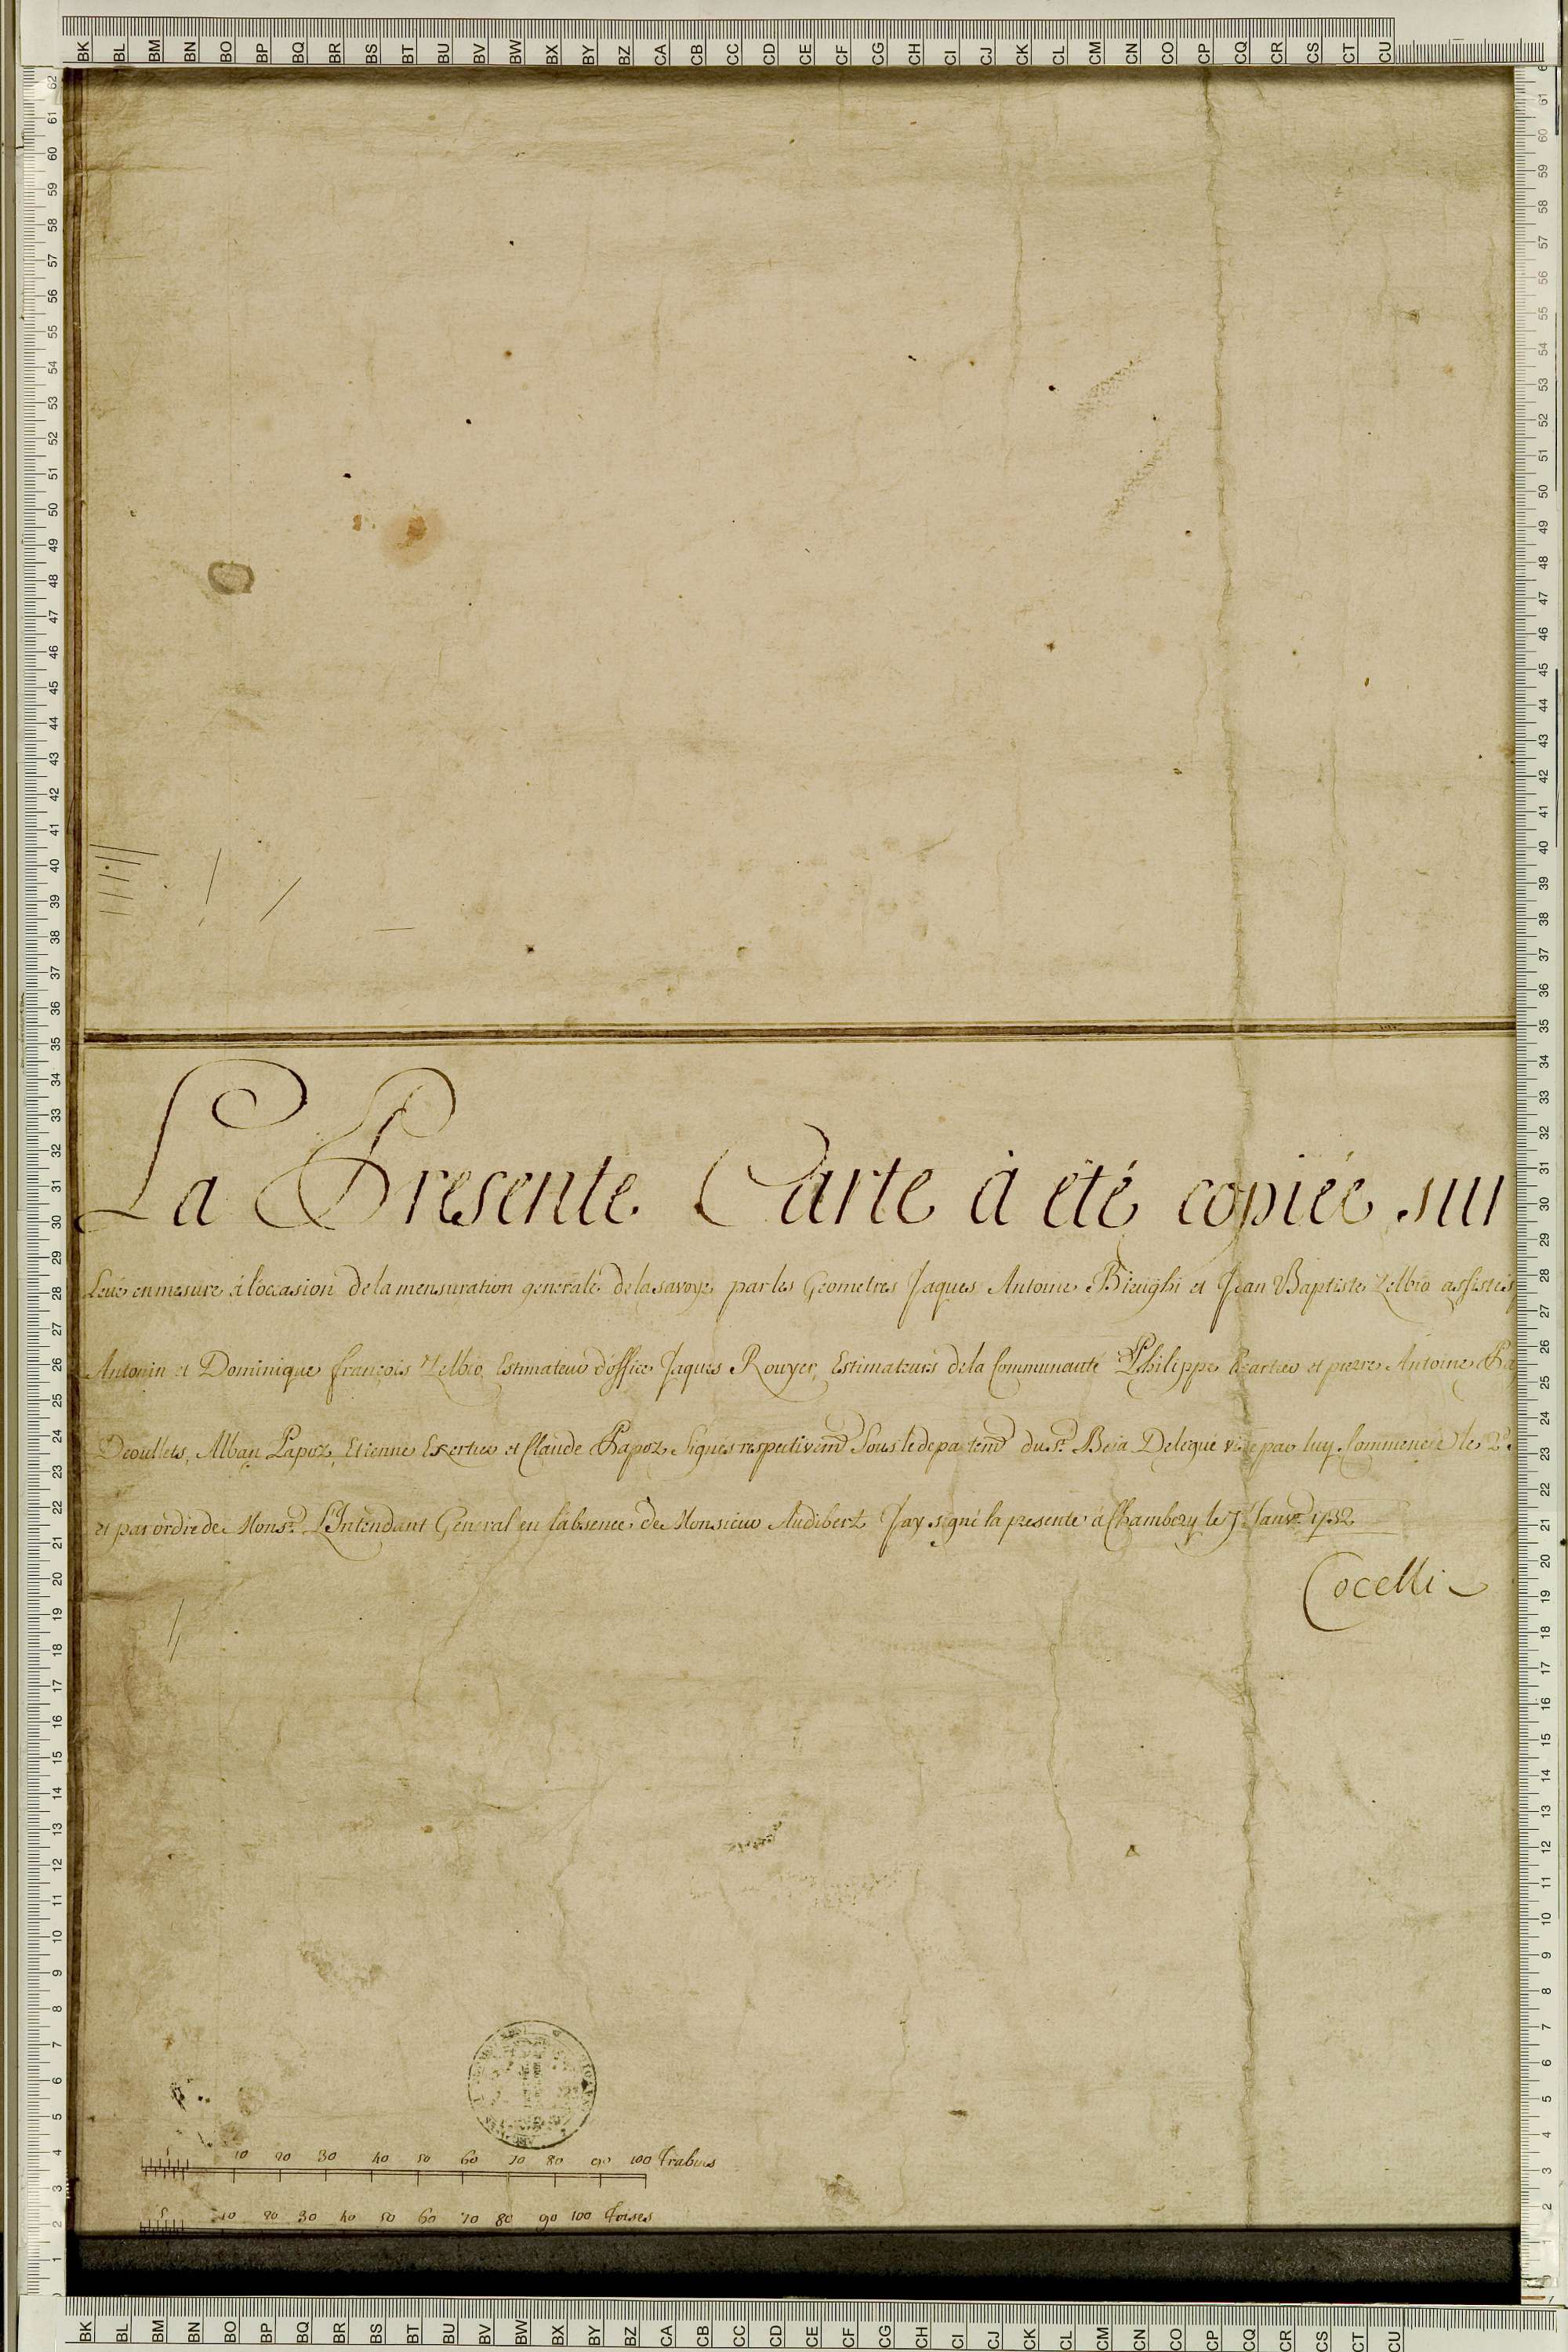 BK BL BM BN BO BP BQ BR BS BT BU BV BW BX BY BZ CA CB CC CD CE CF CG CH CI CJ CK CL CM CN CO CP CQ CR CS CT CU
La Presente Carte à été copiée sur
Levé en mesure à l'occasion de la mensuration generale de la savoye par les Geometres Jaques Antoine et Jean Baptiste Zelbio assistés
Antonin et Dominique françois Zelbio, Estimateur d'office Jaques Rouyer, Estimateurs de la Communauté Philippe et pierre Antoine
Deoullets, Alban Papoz, Etienne Exertier et Claude Papoz Signés respectivemt Sous le departemt du Sr. Beia Delegué par luy Commencée le
et par ordre de Monsr. L'Intendant General en l'absence de Monsieur Audibert J'ay signé la presente à Chambery le 7 Janvr 1732
Cocelli
5 10 20 30 40 50 60 70 80 90 100 Trabucs
5 10 20 30 40 50 60 70 80 90 100 Toises
BK BL BM BN BO BP BQ BR BS BT BU BV BW BX BY BZ CA CB CC CD CE CF CG CH CI CJ CK CL CM CN CO CP CQ CR CS CT CU